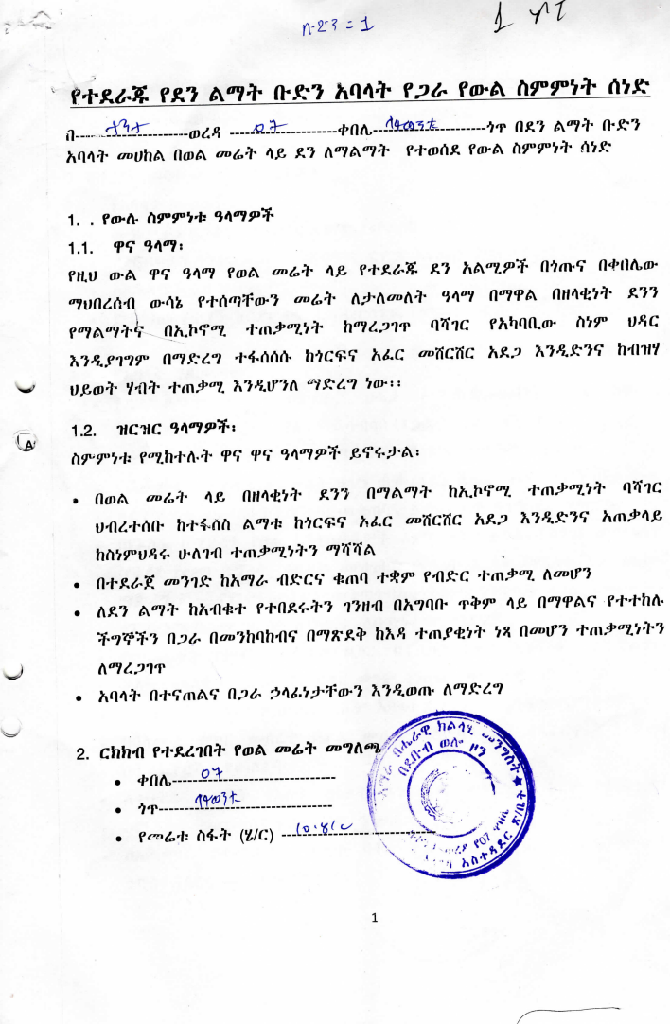 የተደራጁ የደን ልማት ቡድን አባላት የጋራ የውል ስምምነት ሰነድ
በ---------ወረዳ ---07---ቀበሌ---------ጎጥ በደን ልማት ቡድን
አባላት መሀከል በወል መሬት ላይ ደን ለማልማት የተወሰደ የውል ስምምነት ሰነድ
1. . የውሉ ስምምነቱ ዓላማዎች
1.1. ዋና ዓላማ፡
የዚህ ውል ዋና ዓላማ የወል መሬት ላይ የተደራጁ ደን አልሚዎች በጎጡና በቀበሌው
ማህበረሰብ ውሳኔ የተሰጣቸውን መሬት ለታለመለት ዓላማ በማዋል በዘላቂነት ደንን
የማልማትና በኢኮኖሚ ተጠቃሚነት ከማረጋገጥ ባሻገር የአካባቢው ስነም ህዳር
እንዲያገግም በማድረግ ተፋሰሰሱ ከጎርፍና አፈር መሸርሸር አደጋ እንዲድንና ከብዝሃ
ህይወት ሃብት ተጠቃሚ እንዲሆንለ ማድረግ ነው፡፡
1.2. ዝርዝር ዓላማዎች፡
ስምምነቱ የሚከተሉት ዋና ዋና ዓላማዎች ይኖሩታል፡
• በወል መሬት ላይ በዘላቂነት ደንን በማልማት ከኢኮኖሚ ተጠቃሚነት ባሻገር
ህብረተሰቡ ከተፋሰስ ልማቱ ከጎርፍና አፈር መሸርሸር አደጋ እንዲድንና አጠቃላይ
ከስነምህዳሩ ሁለገብ ተጠቃሚነትን ማሻሻል
• በተደራጀ መንገድ ከአማራ ብድርና ቁጠባ ተቋም የብድር ተጠቃሚ ለመሆን
• ለደን ልማት ከአብቁተ የተበደሩትን ገንዘብ በአግባቡ ጥቅም ላይ በማዋልና የተተከሉ
ችግኞችን በጋራ በመንከባከብና በማጽደቅ ከእዳ ተጠያቂነት ነጻ በመሆን ተጠቃሚነትን
ለማረጋገጥ
• አባላት በተናጠልና በጋራ ኃላፊነታቸውን እንዲወጡ ለማድረግ
2. ርክክብ የተደረገበት የወል መሬት መግለጫ
• ቀበሌ---07---
• ጎጥ---------
• የመሬቱ ስፋት (ሄ/ር) ---------
በደቡብ ወሎ ዞን
1